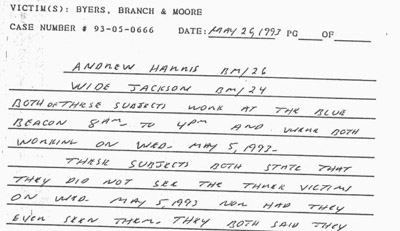 VICTIM(S): BYERS, BRANCH & MOORE
CASE NUMBER # 93-05-0666 DATE: MAY 26, 1993 PG___OF___
ANDREW HARRIS BM/26
WIDE JACKSON BM/24
BOTH OF THESE SUBJECTS WORK AT THE BLUE
BEACON 8AM TO 4PM AND WERE BOTH
WORKING ON WED. MAY 5, 1993.
THESE SUBJECTS BOTH STATE THAT
THEY DID NOT SEE THE THREE VICTIMS
ON WED. MAY 5, 1993 NOR HAD THEY
EVER SEEN THEM. THEY BOTH SAID THEY